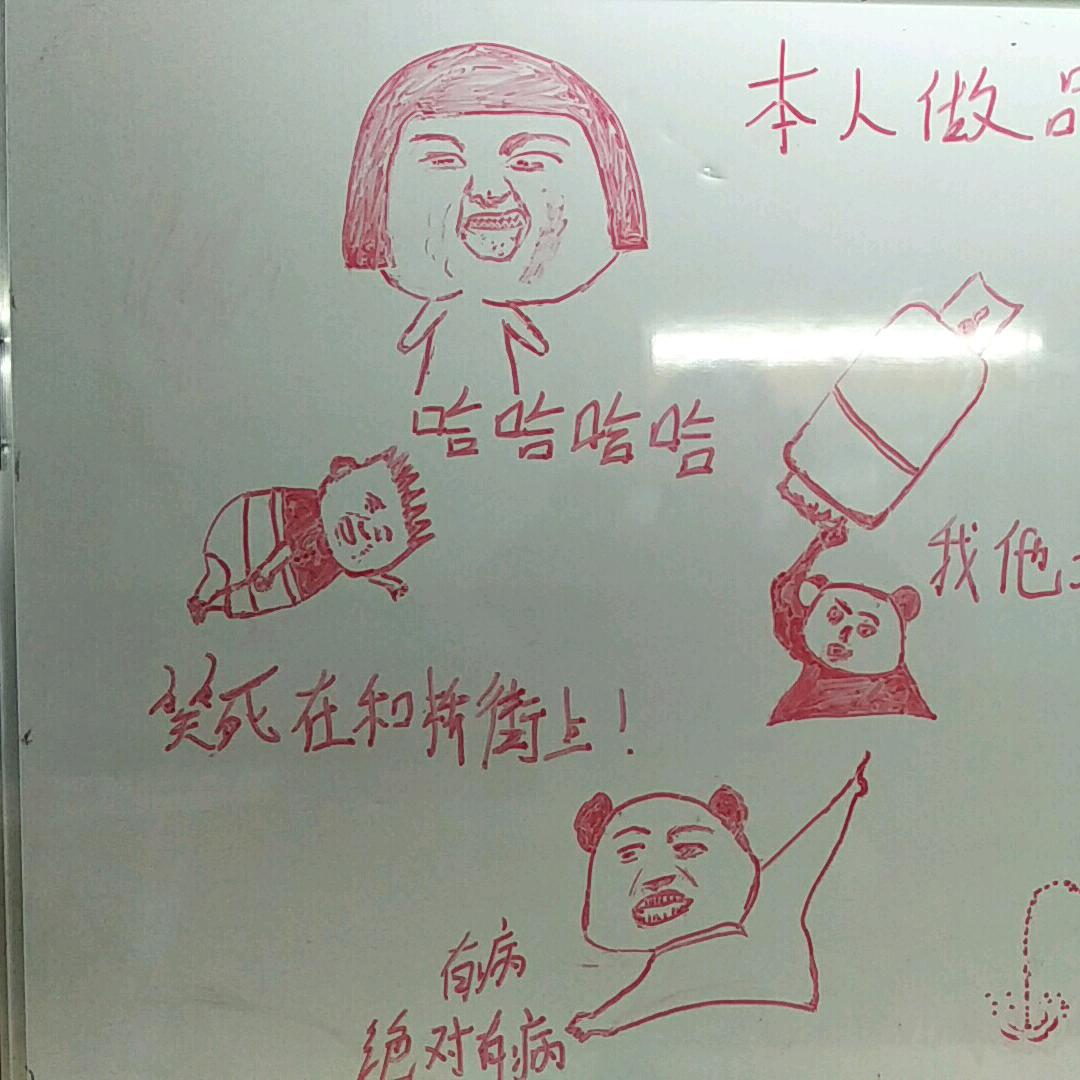 本人做
哈哈哈哈
我他
笑死在和桥街上!
有病
绝对有病